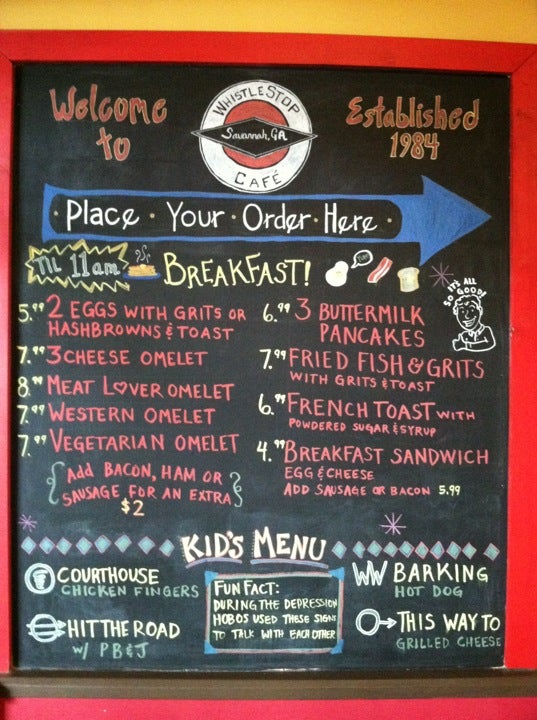 Welcome to
WHISTLESTOP
Savannah, GA
CAFÉ
Established
1984
Place · Your · Order · Here ·
TIL 11am
BREAKFAST!
IT'S ALL
SO GOOD!
5.99 2 EGGS WITH GRITS OR
HASHBROWNS & TOAST
7.99 3 CHEESE OMELET
8.99 MEAT LOVER OMELET
7.99 WESTERN OMELET
7.99 VEGETARIAN OMELET
{ Add BACON, HAM OR
SAUSAGE FOR AN EXTRA }
$2
6.99 3 BUTTERMILK
PANCAKES
7.99 FRIED FISH & GRITS
WITH GRITS & TOAST
6.99 FRENCH TOAST WITH
POWDERED SUGAR & SYRUP
4.99 BREAKFAST SANDWICH
EGG & CHEESE
ADD SAUSAGE OR BACON 5.99
KID'S MENU
COURTHOUSE
CHICKEN FINGERS
HIT THE ROAD
W/ PB&J
FUN FACT:
DURING THE DEPRESSION
HOBOS USED THESE SIGNS
TO TALK WITH EACH OTHER
WW BARKING
HOT DOG
THIS WAY TO
GRILLED CHEESE